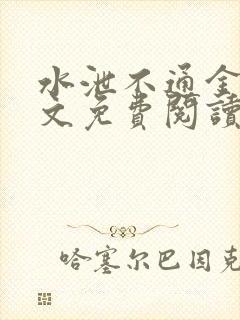 水泄不通全
文免費閱讀
哈塞尔巴因克